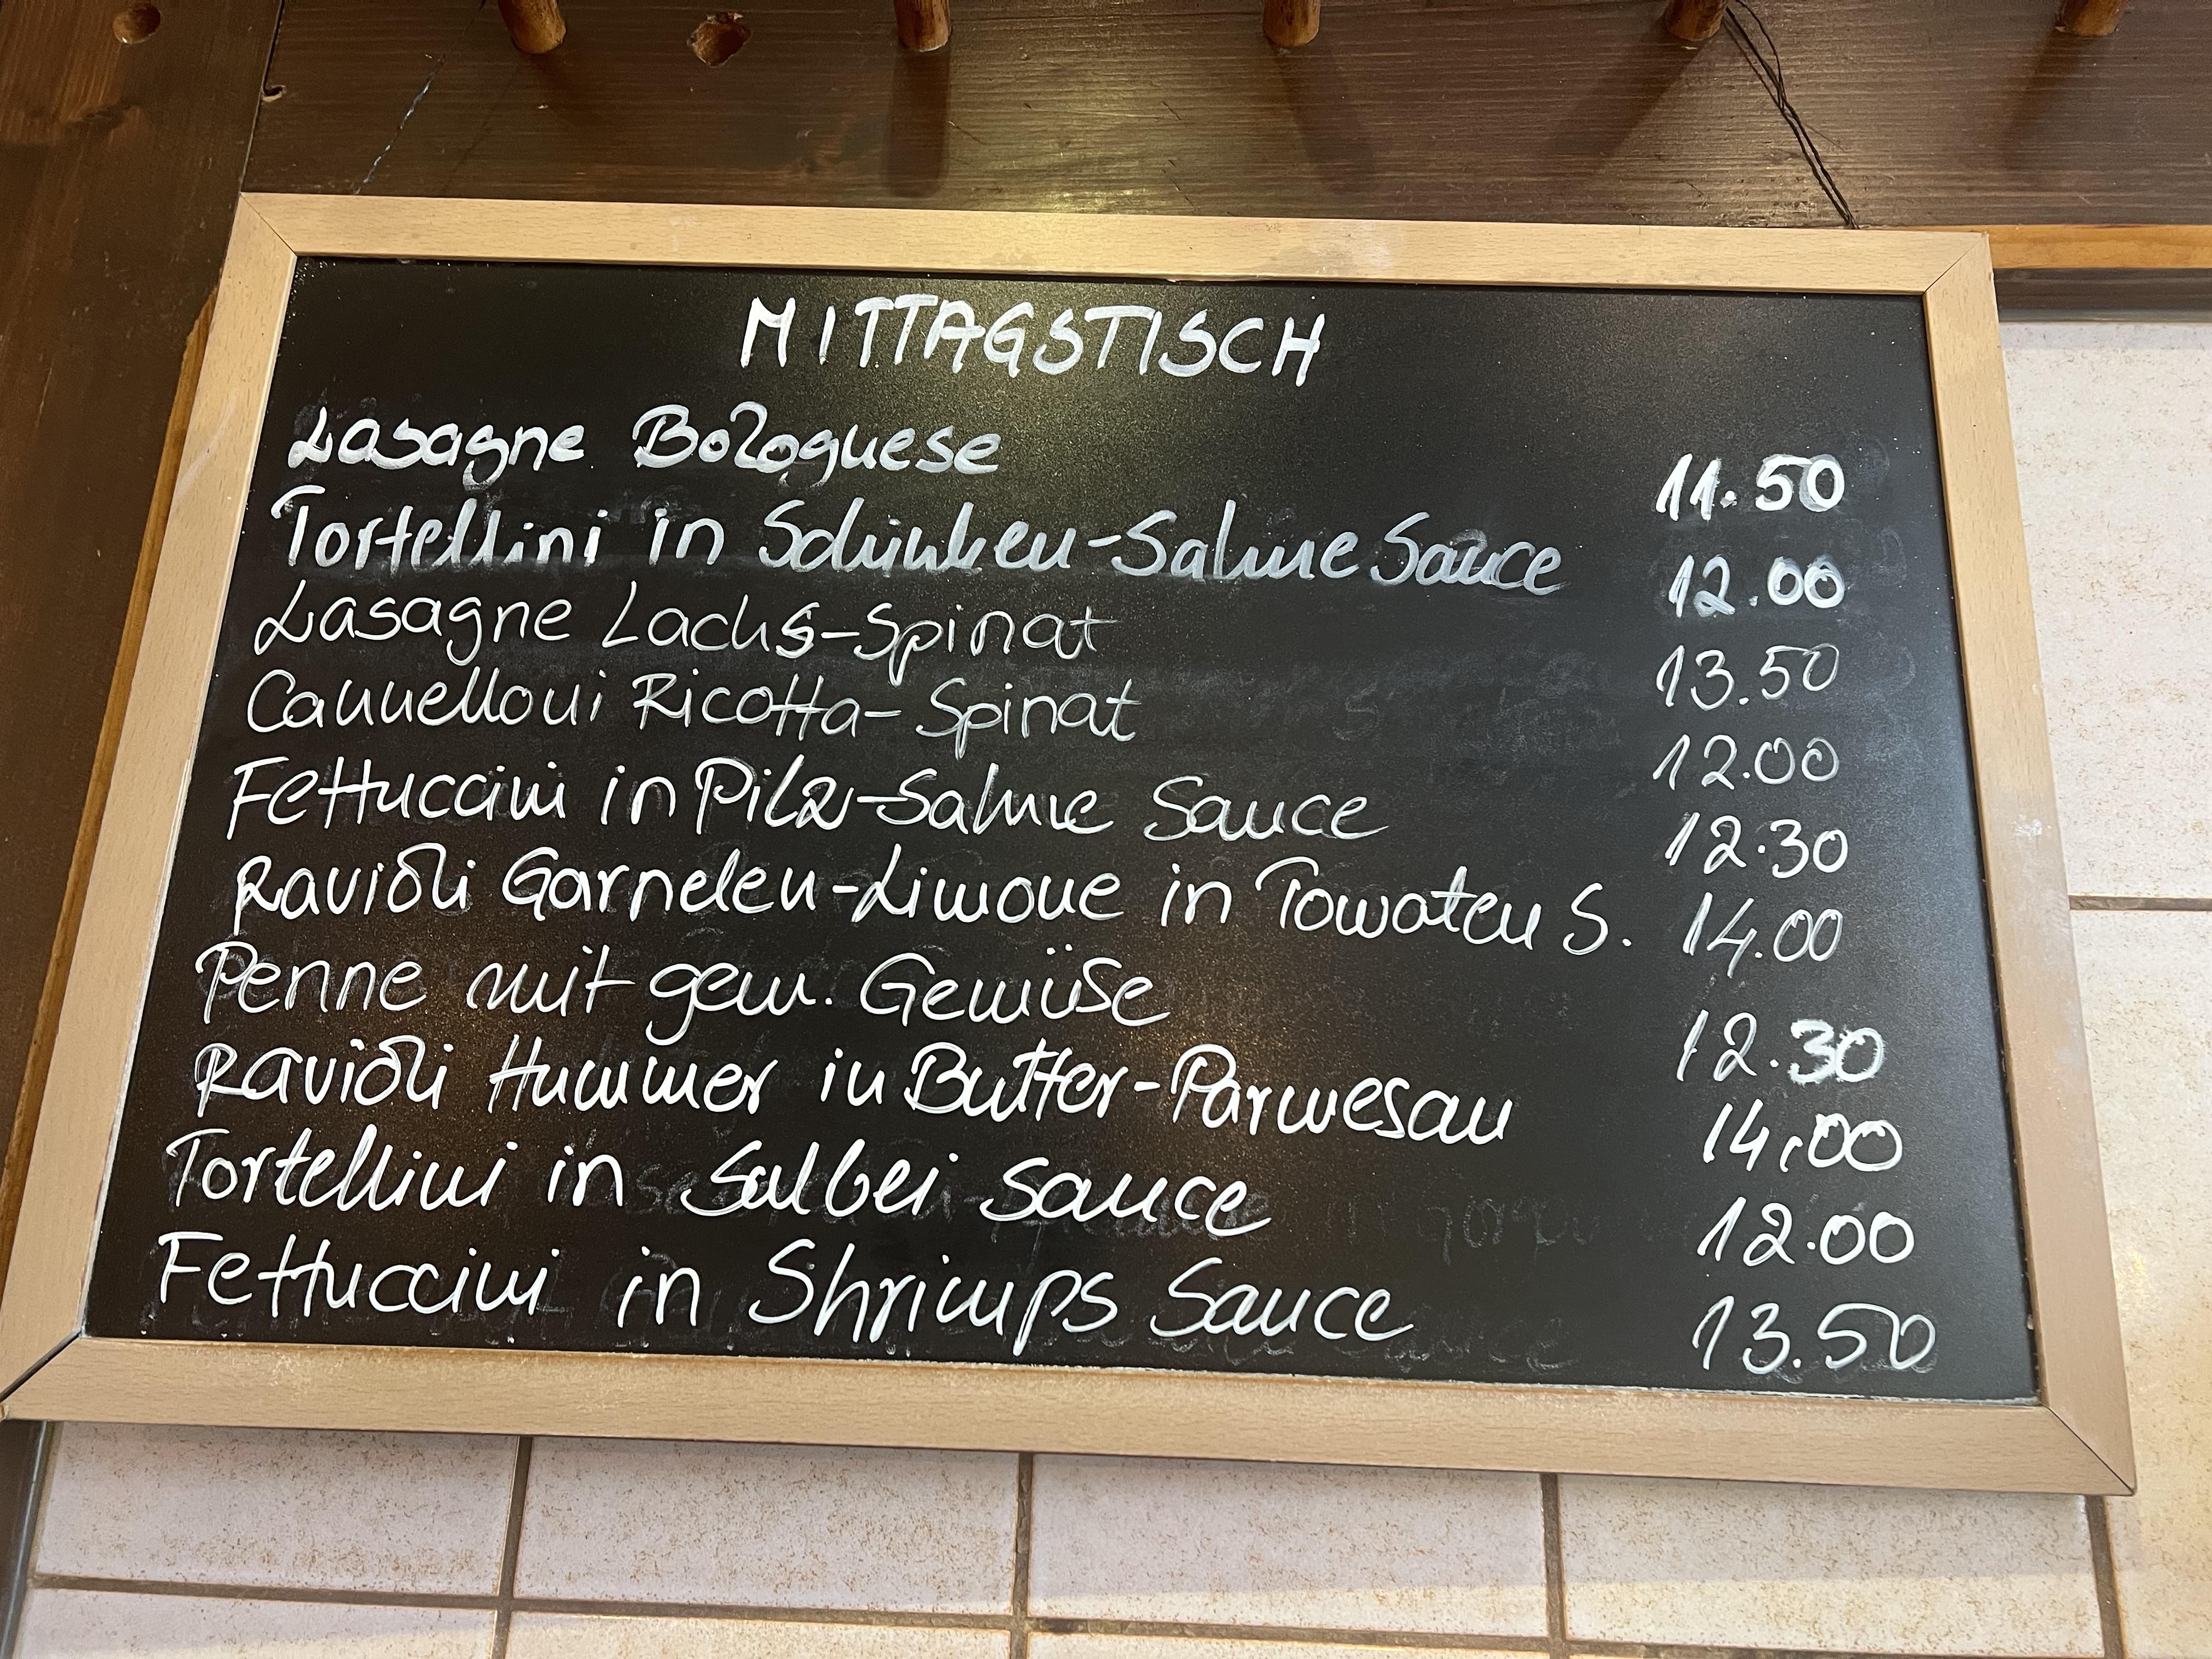 MITTAGSTISCH
Lasagne Bolognese 11.50
Tortellini in Schinken-Sahne Sauce 12.00
Lasagne Lachs-Spinat 13.50
Cannelloni Ricotta-Spinat 12.00
Fettuccini in Pilz-Sahne Sauce 12.30
Ravioli Garnelen-Limone in Tomaten S. 14.00
Penne mit gem. Gemüse 12.30
Ravioli Hummer in Butter-Parmesan 14,00
Tortellini in Salbei Sauce 12.00
Fettuccini in Shrimps Sauce 13.50